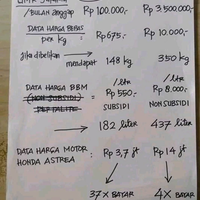 /BULAN anggap Rp 100.000,- Rp 3.500.000,-
DATA HARGA BERAS
per kg : Rp 675,- Rp 10.000,-
jika dibelikan
mendapat 148 kg 350 kg
/ltr /ltr
DATA HARGA BBM : Rp 550,- Rp 8.000,-
(NON SUBSIDI) SUBSIDI NON SUBSIDI
PERTALITE
182 liter 437 liter
DATA HARGA MOTOR : Rp 3,7 jt Rp 14 jt
HONDA ASTREA
37 X BAYAR 4X BAYAR